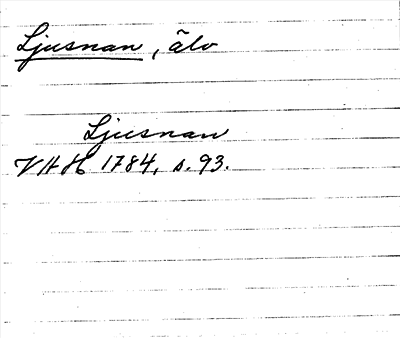 Ljusnan, älv
Ljusnan
VHH 1784, s. 93.